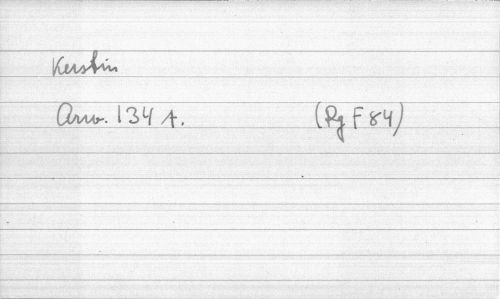 Kerstin
Arw. 134 A. (Rg F 84)